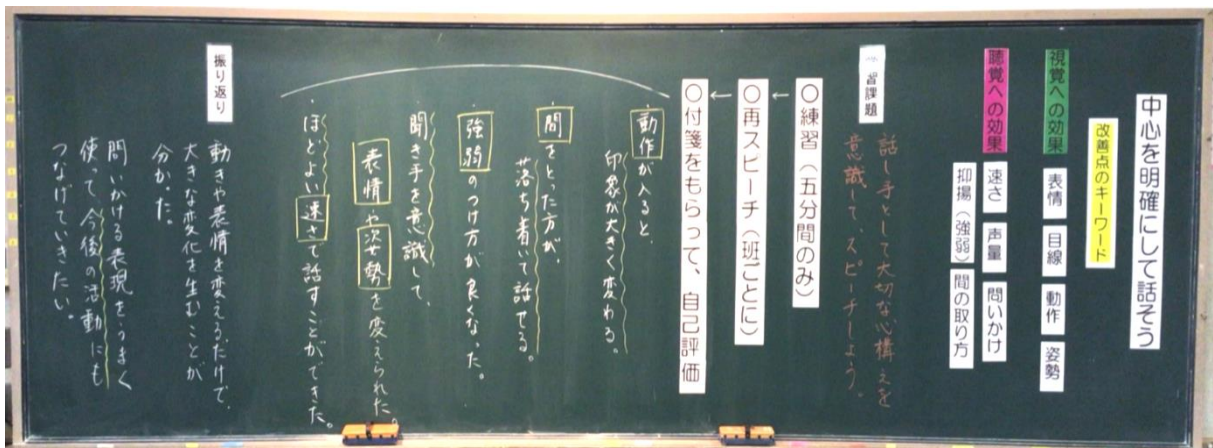 中心を明確にして話そう
改善点のキーワード
視覚への効果
表情
目線
動作
姿勢
聴覚への効果
速さ
声量
問いかけ
抑揚(強弱)
間の取り方
学習課題
話し手として大切な心構えを
意識して、スピーチしよう。
〇練習(五分間のみ)
←
〇再スピーチ(班ごとに)
←
〇付箋をもらって、自己評価
・動作が入ると、
印象が大きく変わる。
・間をとった方が、
落ち着いて話せる。
・強弱のつけ方が良くなった。
・聞き手を意識して、
表情や姿勢を変えられた。
・ほどよい速さで話すことができた。
振り返り
動きや表情を変えるだけで、
大きな変化を生むことが
分かった。
問いかける表現をうまく
使って、今後の活動にも
つなげていきたい。